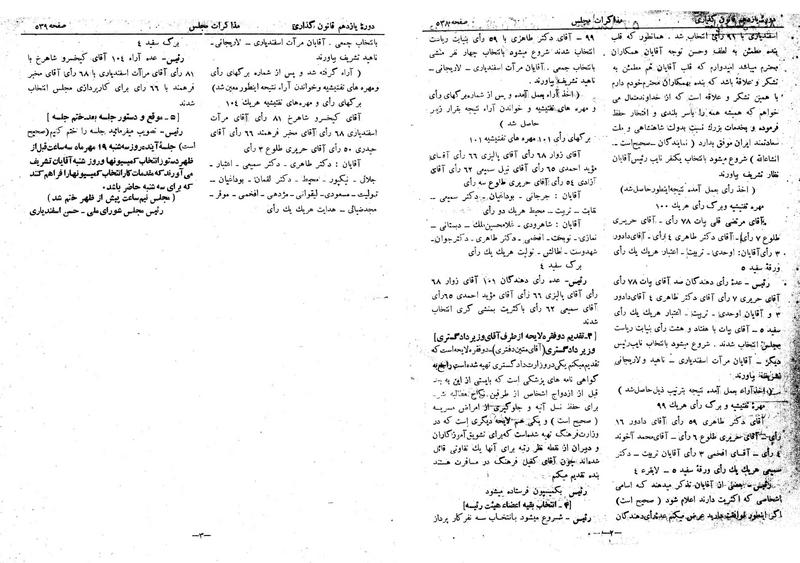 دورهٔ یازدهم قانون گذاری
مذاکرات مجلس
صفحه ۵۳۸
اسفندیاری با ۹۱ رأی انتخاب شد. همانطور که قلب
بنده مطمئن به لطف وحسن توجه آقایان همکاران
محترم میباشد امیدوارم که قلب آقایان هم مطمئن به
تشکر و علاقهٔ باشد که بنده بهمکاران محترم خودم دارم
با همین تشکر و علاقه است که از خداوند متعال می
خواهم که همیشه همه را یاسر بلندی و افتخار حفظ
فرموده و بخدمات بزرگ نسبت بدولت شاهنشاهی و ملت
سعادتمند ایران موفق بدارد (نمایندگان ـ صحیح است ـ
انشاءالله) شروع میشود بانتخاب یکنفر نایب رئیس آقایان
نظار تشریف بیاورند
(اخذ رأی بعمل آمده نتیجه اینطور حاصل شد)
مهره تفتیشیه و برگ رأی هریک ۱۰۰
آقای مرتضی قلی بیات ۷۸ رأی ـ آقای حریری
طلوع ۷ رأی ـ آقای دکتر طاهری ۴ رأی ـ آقای دادور
۳ رأی آقایان: اوحدی ـ تربیت ـ اعتبار هریک یک رأی
ورقهٔ سفید ۵
رئیس ـ عدهٔ رأی دهندگان صد آقای بیات ۷۸ رأی
آقای حریری ۷ رأی آقای دکتر طاهری ۴ آقای دادور
۳ و آقایان اوحدی ـ تربیت ـ اعتبار هریک یک رأی
سفید ۵ ـ آقای بیات با هفتاد و هشت رأی بنیابت ریاست
مجلس انتخاب شدند. شروع میشود بانتخاب نایب رئیس
دیگر ـ آقایان مرآت اسفندیاری ـ ناهید و لاریجانی
تشریف بیاورند
(اخذ آراء بعمل آمده نتیجه بترتیب ذیل حاصل شد)
مهرهٔ تفتیشیه و برگ رأی هریک ۹۹
آقای دکتر طاهری ۵۹ رأی آقای دادور ۱۶
رأی ـ آقای حریری طلوع ۶ رأی ـ آقای محمد آخوند
۴ رأی ـ آقای افخمی ۳ رأی آقایان تربیت ـ دکتر
سمیعی هریک یک رأی ورقهٔ سفید ۵ ـ لایقرء ۴
رئیس ـ بعضی از آقایان تذکر میدهند که اسامی
اشخاصی که اکثریت دارند اعلام شود (صحیح است)
اگر اینطور موافقت دارید عرض میکنم عدهٔ رأی دهندگان
۹۹ ـ آقای دکتر طاهری با ۵۹ رأی بنیابت ریاست
انتخاب شدند شروع میشود بانتخاب چهار نفر منشی
بانتخاب جمعی. آقایان مرآت اسفندیاری ـ لاریجانی ـ
ناهید تشریف بیاورند.
(اخذ آراء بعمل آمده و پس از شماره برگهای رأی
و مهره های تفتیشیه و خواندن آراء نتیجه بقرار زیر
حاصل شد)
برگهای رأی ۱۰۱ مهره های تفتیشیه ۱۰۱
آقای زوار ۶۸ رأی آقای پالیزی ۶۶ رأی آقای
مؤید احمدی ۶۵ رأی آقای نیل سمیعی ۶۲ رأی آقای
آزادی ۵۴ رأی آقای حریری طلوع سه رأی
آقایان: جرجانی ـ بوداغیان ـ دکتر سمیعی ـ
نقابت ـ تربیت ـ محیط هریک دو رأی
آقایان: شاهرودی ـ غلامحسین ملک ـ دبستانی ـ
نمازی ـ نوبخت ـ افخمی ـ دکتر طاهری ـ دکتر جوان ـ
شهدوست ـ طالش ـ تولیت هریک یک رأی
برگ سفید ۴
رئیس ـ عده رأی دهندگان ۱۰۱ آقای زوار ۶۸
رأی آقای پالیزی ۶۶ رأی آقای مؤید احمدی ۶۵ رأی
آقای سمیعی ۶۲ رأی باکثریت بمنشی گری انتخاب
شدند
[۳ـ تقدیم دو فقره لایحه از طرف آقای وزیر دادگستری]
وزیر دادگستری (آقای متین دفتری) ـ دو فقره لایحه است که
تقدیم میکنم یکی در وزارت دادگستری تهیه شده است راجع به
گواهی نامه های پزشکی است که بایستی از این به بعد
قبل از ازدواج اشخاص از طرفین نکاح مطالبه شود
برای حفظ نسل آتیه و جلوگیری از امراض مسریه
(صحیح است) و یکی هم لایحه دیگری است که در
وزارت فرهنگ تهیه شده است که برای تشویق آموزگاران
و دبیران از نقطه نظر رتبه برای آنها یک تفاوتی قائل
شده اند چون آقای کفیل فرهنگ در مسافرت هستند
بنده تقدیم میکنم
رئیس بکمیسیون فرستاده میشود
[۴ـ انتخاب بقیه اعضاء هیئت رئیسه]
رئیس ـ شروع میشود بانتخاب سه نفر کار پرداز
ـ۲ـ
دورهٔ یازدهم قانون گذاری
مذاکرات مجلس
صفحه ۵۳۹
بانتخاب جمعی. آقایان مرآت اسفندیاری ـ لاریجانی ـ
ناهید تشریف بیاورند
(آراء گرفته شد و پس از شماره برگهای رأی
ومهره های تفتیشیه وخواندن آراء نتیجه اینطور معین شد)
برگهای رأی و مهره های تفتیشیه هریک ۱۰۴
آقای کیخسرو شاهرخ ۸۱ رأی آقای مرآت
اسفندیاری ۶۸ رأی آقای مخبر فرهمند ۶۶ رأی آقای
حیدری ۵۰ رأی آقای حریری طلوع ۳ رأی
آقایان: دکتر طاهری ـ دکتر سمیعی ـ اعتبار ـ
جلالی ـ نیکپور ـ محیط ـ دکتر لقمان ـ بوداغیان ـ
تولیت ـ مسعودی ـ لیقوانی ـ مژدهی ـ افخمی ـ موقر ـ
مجد ضیائی ـ هدایت هریک یک رأی
برگ سفید ۴
رئیس ـ عده آراء ۱۰۴ آقای کیخسرو شاهرخ با
۸۱ رأی آقای مرآت اسفندیاری با ۶۸ رأی آقای مخبر
فرهمند با ۶۶ رأی برای کارپردازی مجلس انتخاب
شدند
[۵ ـ موقع و دستور جلسه بعد ـ ختم جلسه]
رئیس ـ تصویب میفرمائید جلسه را ختم کنیم (صحیح
است) جلسهٔ آینده روز سه شنبه ۱۹ مهرماه سه ساعت قبل از
ظهر دستور انتخاب کمیسیونها و روز شنبه آقایان تشریف
می آورند که مقدمات کار انتخاب کمیسیونها را فراهم کنند
که برای سه شنبه حاضر باشد.
(مجلس نیم ساعت پیش از ظهر ختم شد)
رئیس مجلس شورای ملی ـ حسن اسفندیاری
ـ۳ـ